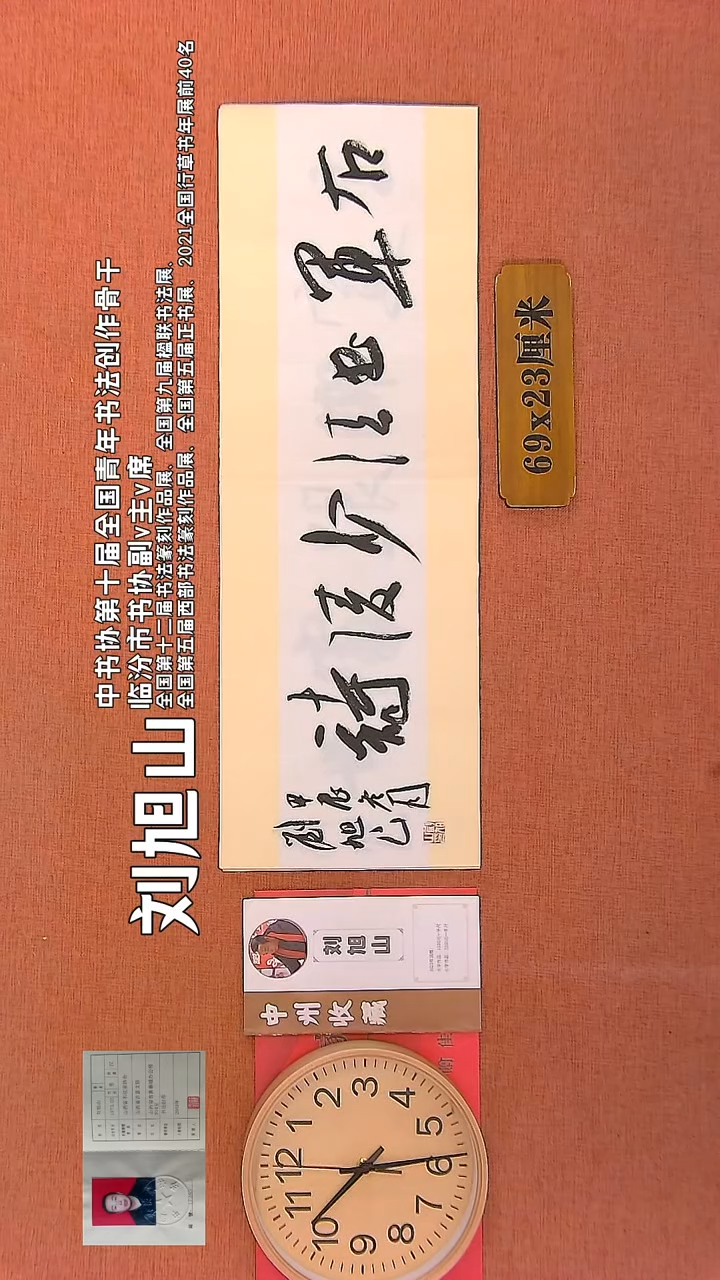 中书协第十届全国青年书法创作骨干
临汾市书协副v主v席
全国第十二届书法篆刻作品展、全国第九届楹联书法展、
全国第五届西部书法篆刻作品展、全国第五届正书展、2021全国行草书年展前40名
刘旭山
右軍書法少陵詩
甲辰冬月
劉旭山
69x23厘米
刘旭山
中州收藏
12
1
2
3
4
5
6
7
8
9
10
11